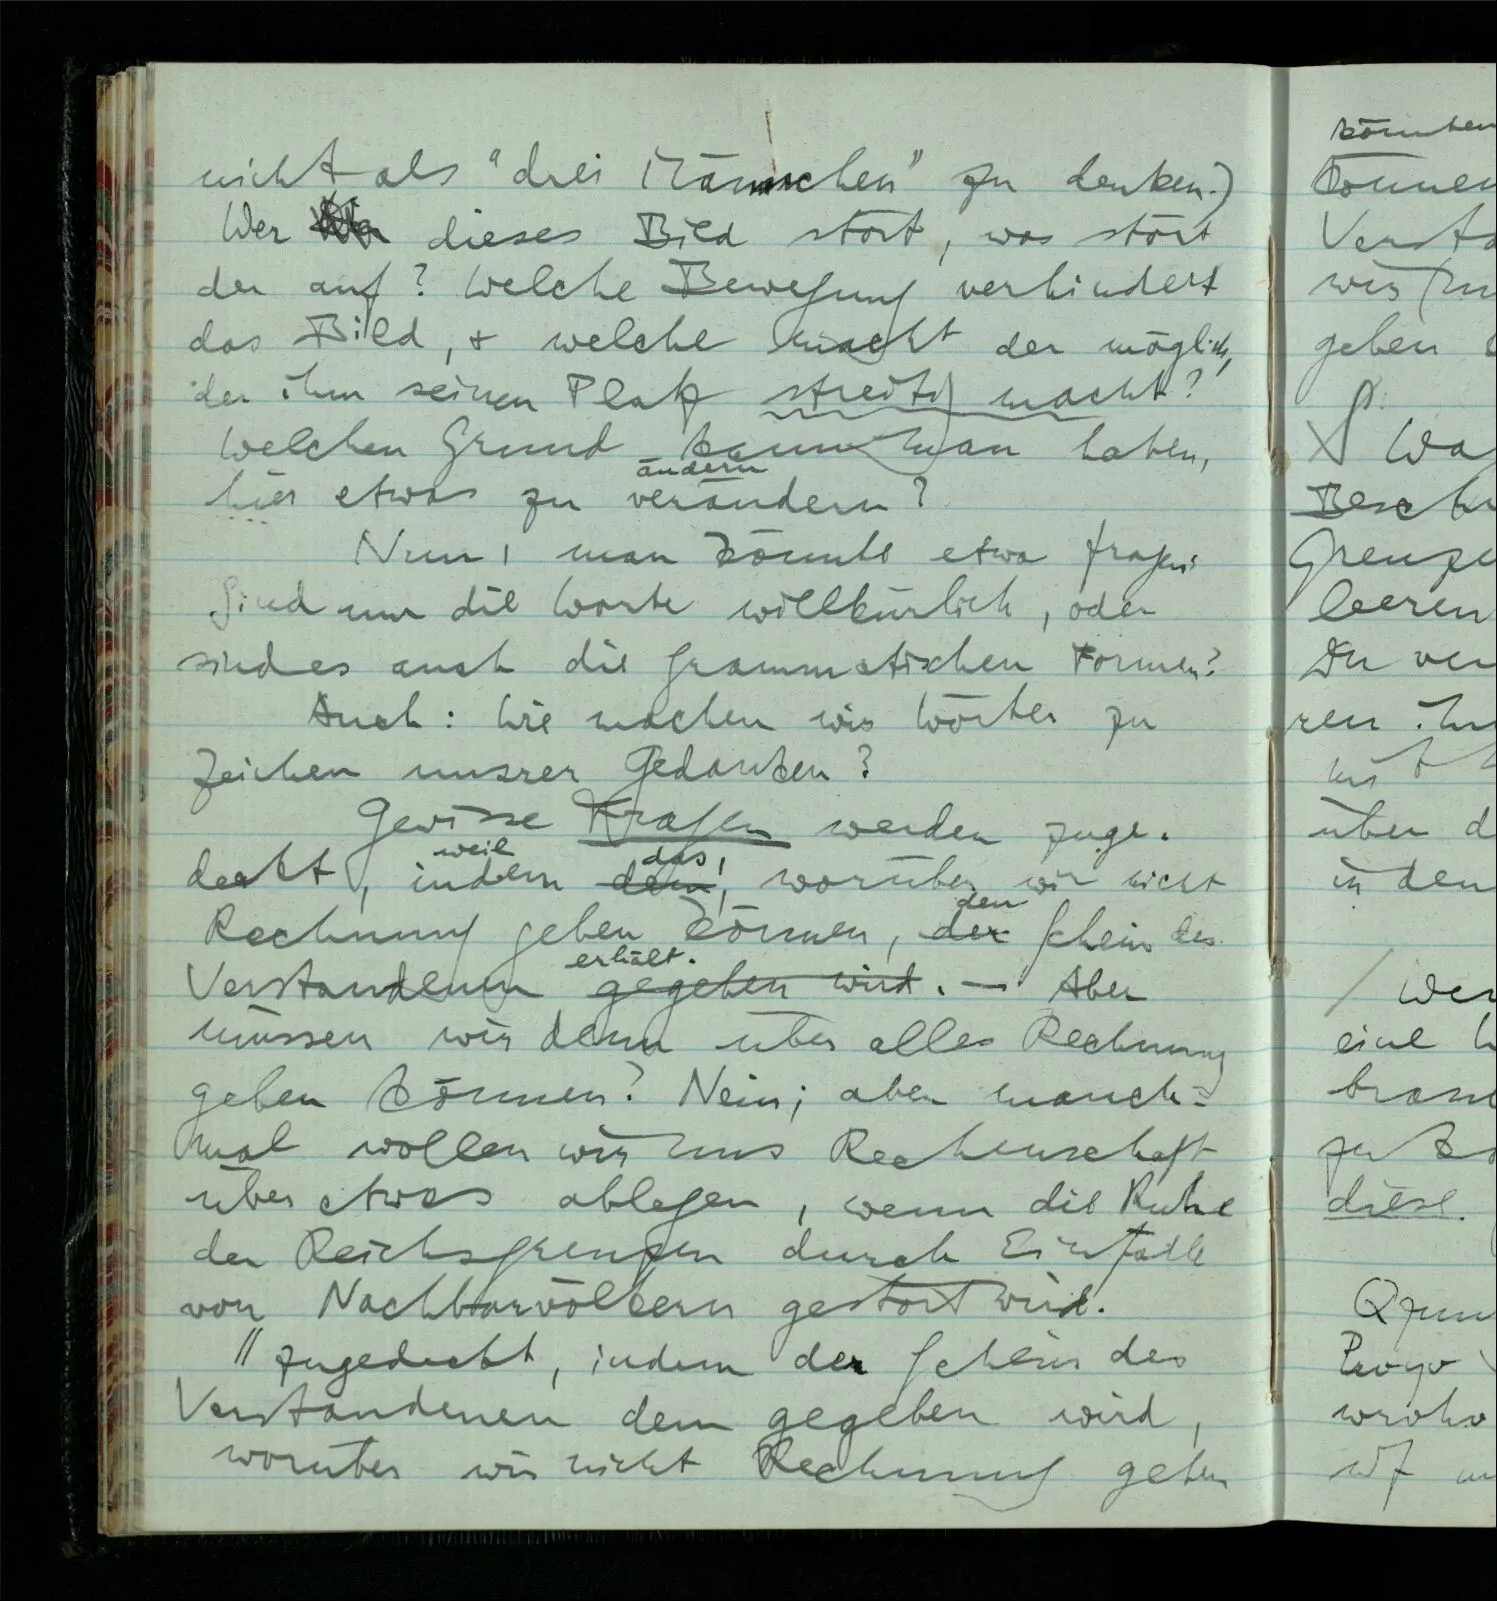 nicht als "drei Männchen" zu denken.)
Wer dieses Bild stört, was stört
der auf? Welche Bewegung verhindert
das Bild, & welche macht der möglich,
der ihm seinen Platz streitig macht?
Welchen Grund kann man haben,
ändern
hier etwas zu verändern?
Nun, man könnte etwa fragen:
Sind nur die Worte willkürlich, oder
sind es auch die grammatischen Formen?
Auch: Wie machen wir Wörter zu
Zeichen unsrer Gedanken?
Gewisse Fragen werden zuge-
weil das,
deckt, indem dem, worüber wir nicht
den
Rechnung geben können, der Schein des
erhält.
Verstandenen gegeben wird. — Aber
müssen wir denn über alles Rechnung
geben können? Nein; aber manch-
mal wollen wir uns Rechenschaft
über etwas ablegen, wenn die Ruhe
der Reichsgrenzen durch Einfälle
von Nachbarvölkern gestört wird.
// zugedeckt, indem der Schein des
Verstandenen dem gegeben wird,
worüber wir nicht Rechnung geben
könnten
können
Versta
wir
geben
Wa
Besch
Grenze
leeren
Du ver
ren ihn
über d
in den
/ Wer
eine
diese.